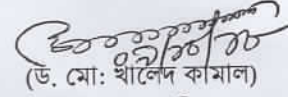 (ড. মো: খালেদ কামাল)